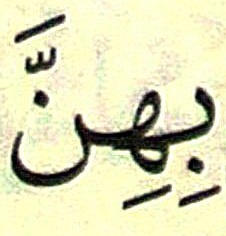 بِهِنَّ